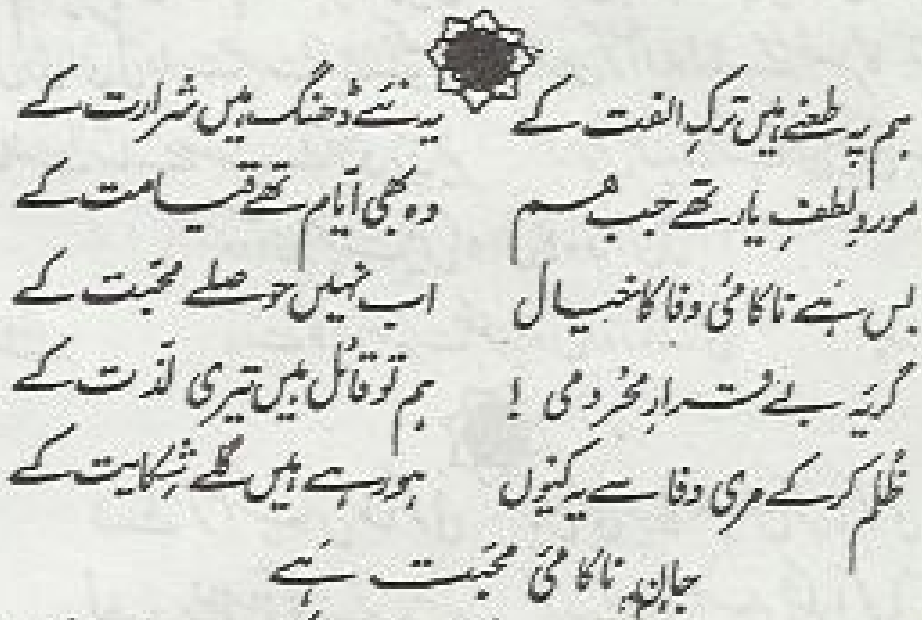 ہم پہ طعنے ہیں ترکِ الفت کے یہ نئے ڈھنگ ہیں شرارت کے
موردِ لطفِ یار تھے جب ہم وہ بھی ایّام تھے قیامت کے
بس ہے ناکامئ وفا کا خیال اب نہیں حوصلے محبّت کے
گریۂ بے قرارِ محرومی ! ہم تو قائل ہیں تیری لذّت کے
ظلم کر کے مری وفا سے یہ کیوں ہو رہے ہیں گلے شکایت کے
ناکامئ محبّت ہے